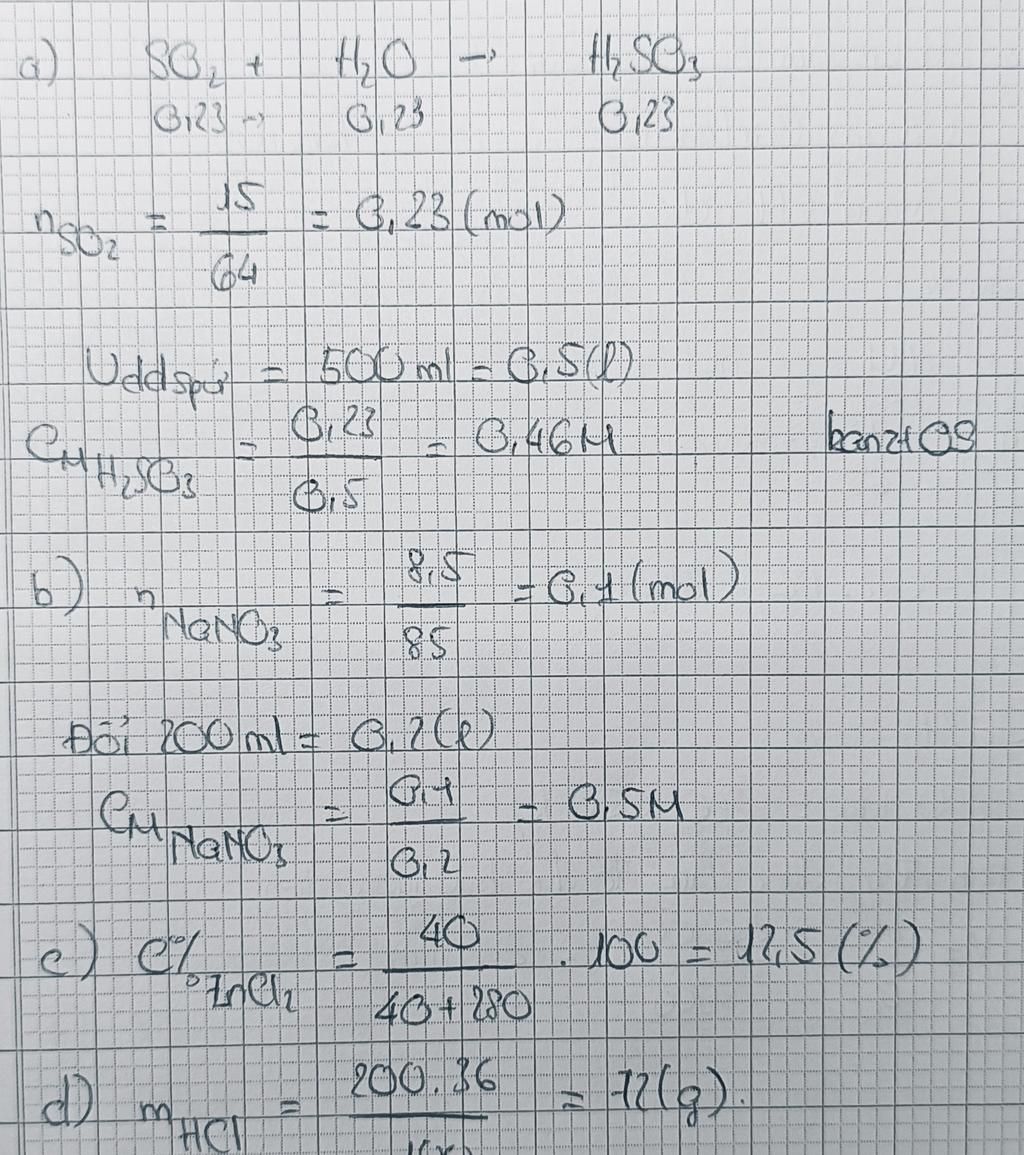 a) SO₂ + H₂O → H₂SO₃
0,23 → 0,23 0,23
n SO₂ = 15/64 = 0,23 (mol)
Vddspứ = 500 ml = 0,5 (l)
CM H₂SO₃ = 0,23/0,5 = 0,46M
b) n NaNO₃ = 8,5/85 = 0,1 (mol)
Đổi 200 ml = 0,2 (l)
CM NaNO₃ = 0,1/0,2 = 0,5M
c) C% ZnCl₂ = 40/40+280 . 100 = 12,5 (%)
d) m HCl = 200.36/100 = 72 (g).